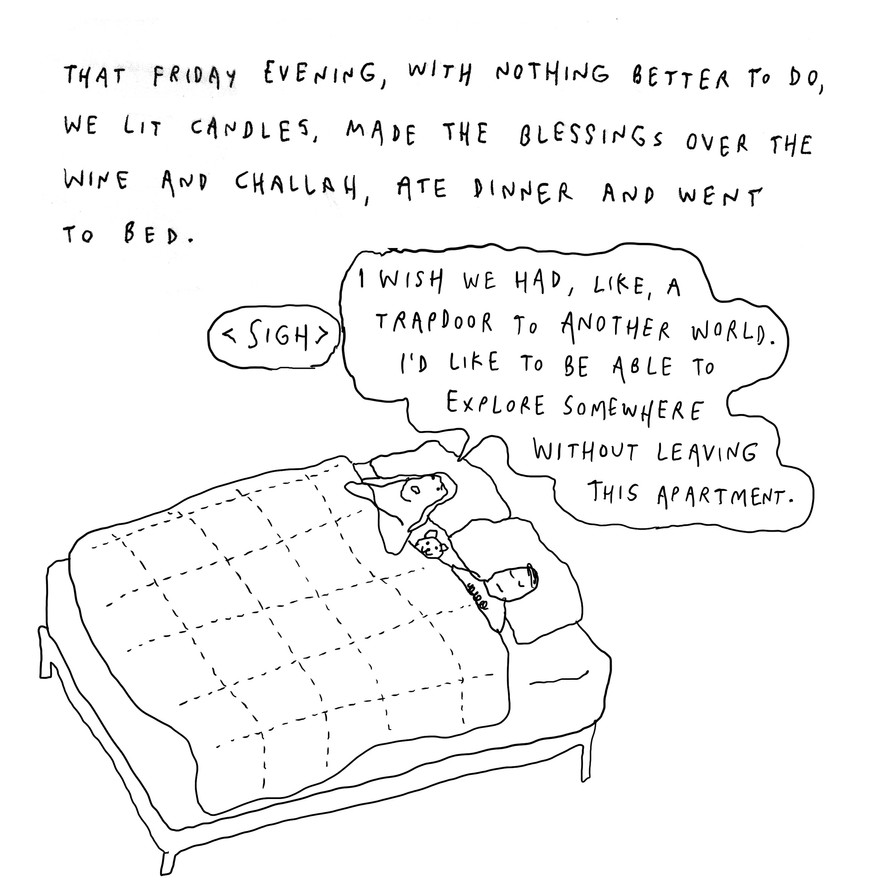 THAT FRIDAY EVENING, WITH NOTHING BETTER TO DO,
WE LIT CANDLES, MADE THE BLESSINGS OVER THE
WINE AND CHALLAH, ATE DINNER AND WENT
TO BED.
<SIGH>
I WISH WE HAD, LIKE, A
TRAPDOOR TO ANOTHER WORLD.
I'D LIKE TO BE ABLE TO
EXPLORE SOMEWHERE
WITHOUT LEAVING
THIS APARTMENT.